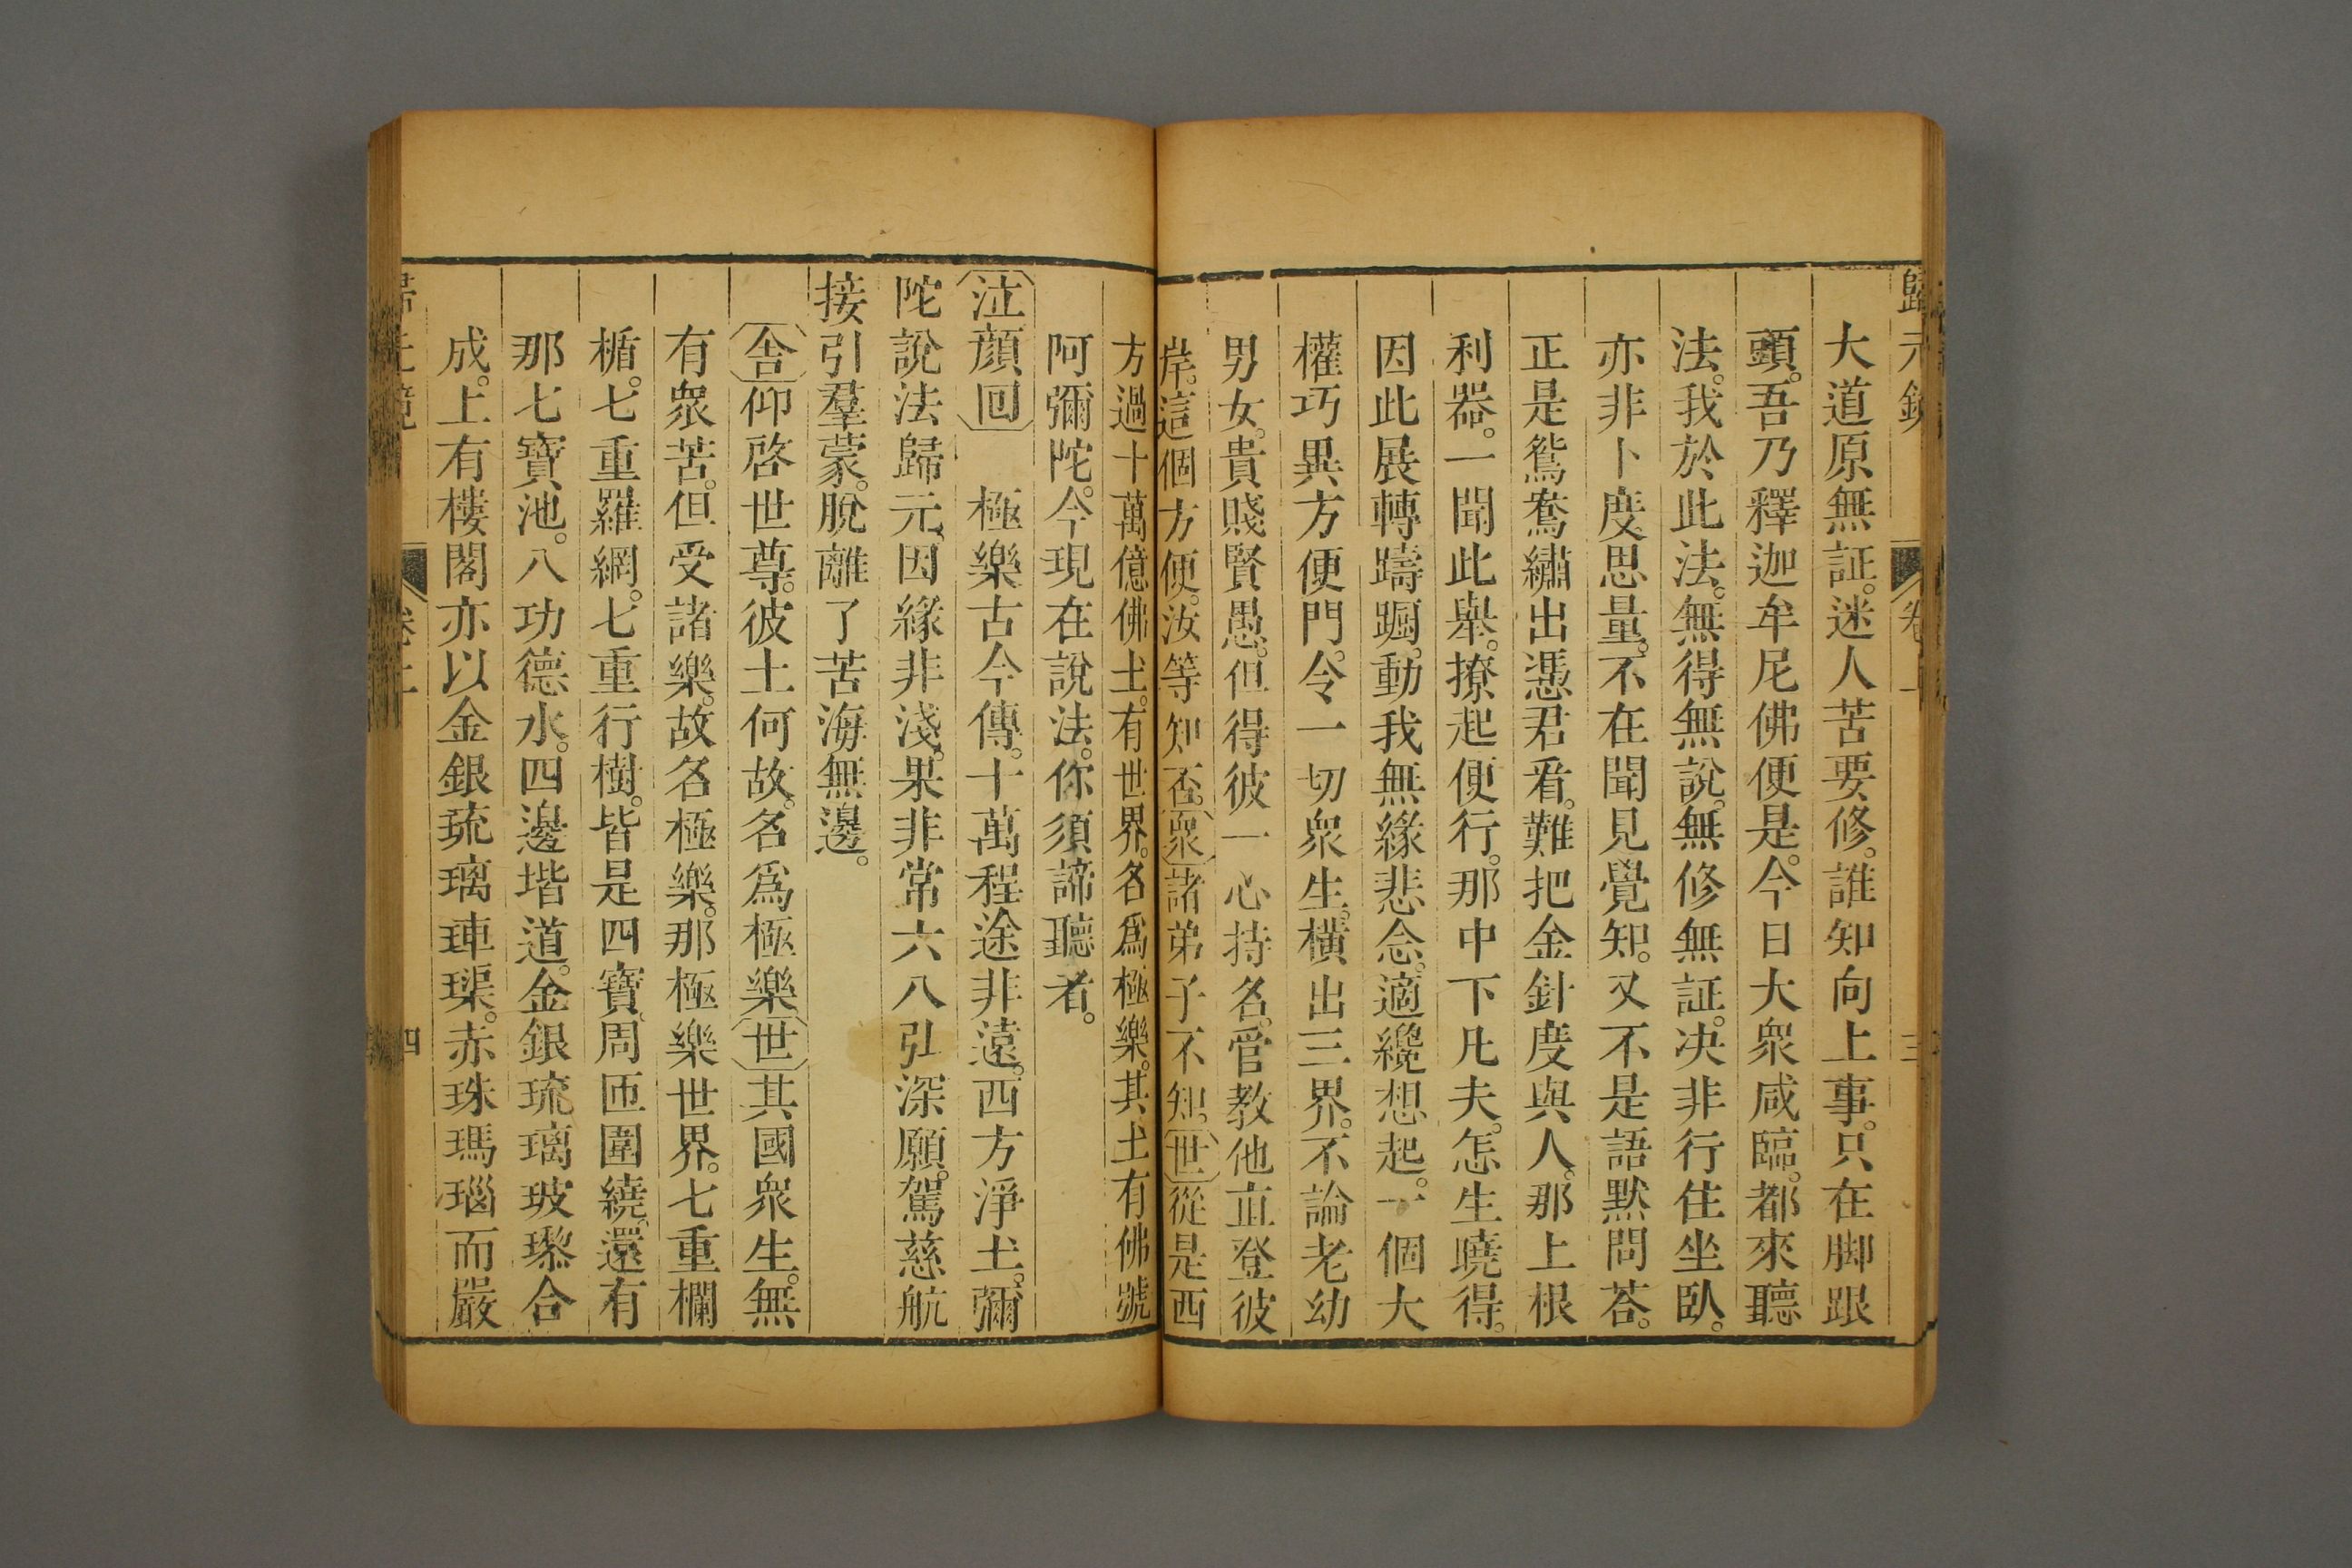 歸元鏡 卷上 三
大道原無証。迷人苦要修。誰知向上事。只在脚跟
頭。吾乃釋迦牟尼佛便是。今日大衆咸臨。都來聽
法。我於此法。無得無說。無修無証。决非行住坐臥。
亦非卜度思量。不在聞見覺知。又不是語默問荅。
正是鴛鴦繡出憑君看。難把金針度與人。那上根
利器。一聞此舉。撩起便行。那中下凡夫。怎生曉得。
因此展轉躊躕。動我無緣悲念。適纔想起。一個大
權巧異方便門。令一切衆生。橫出三界。不論老幼
男女。貴賤賢愚。但得彼一心持名。管教他直登彼
岸。這個方便。汝等知否。衆諸弟子不知。世從是西
方過十萬億佛土。有世界。名爲極樂。其土有佛號
阿彌陀。今現在說法。你須諦聽者。
泣顏回 極樂古今傳。十萬程途非遠。西方淨土。彌
陀說法歸元。因緣非淺。果非常六八弘深願。駕慈航
接引羣蒙。脫離了苦海無邊。
舍仰啓世尊。彼土何故。名爲極樂世其國衆生。無
有衆苦。但受諸樂。故名極樂。那極樂世界。七重欄
楯。七重羅網。七重行樹。皆是四寶。周匝圍繞。還有
那七寶池。八功德水。四邊堦道。金銀琉璃玻瓈合
成。上有樓閣亦以金銀琉璃硨磲。赤珠瑪瑙而嚴
歸元鏡 卷上 四